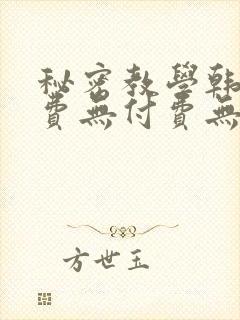 秘密教學韩
費無付費無
方世玉